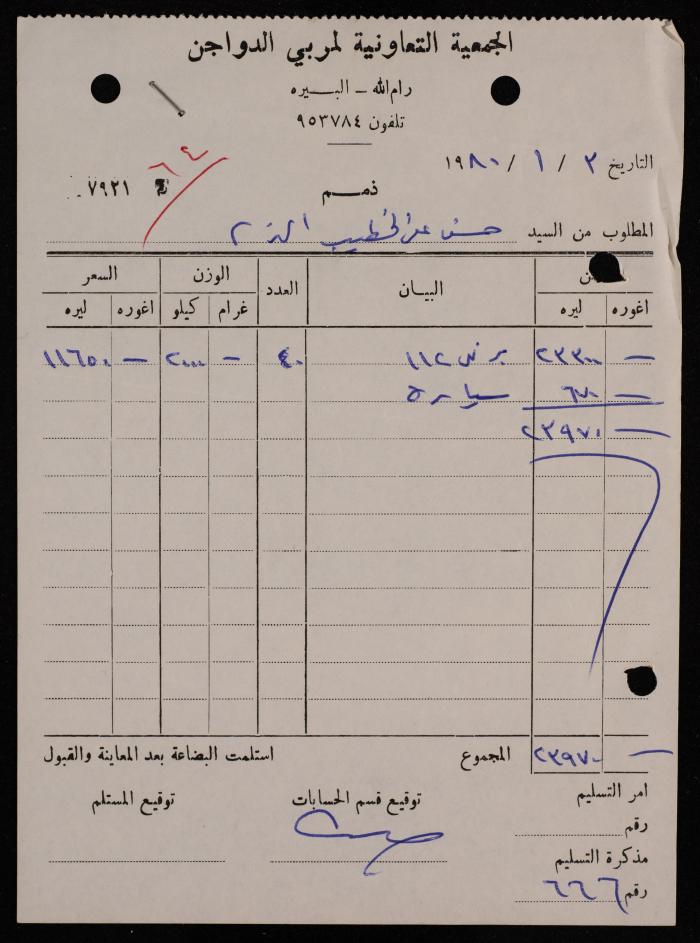 الجمعية التعاونية لمربي الدواجن
رام الله - البـــيره
تلفون ٩٥٣٧٨٤
التاريخ ٢ / ١ / ١٩٨٠
٦٤
ذمـــم
٧٩٢١
المطلوب من السيد حسن الخطيب
اغوره ليره البيــان العدد الوزن غرام كيلو السعر اغوره ليره
— ٢٣٣٠٠ ١١٢ ٤٠ — ٢٠٠٠ — ١١٦٥٠
— ٦٧٠ سيارة
— ٢٣٩٧٠
— ٢٣٩٧٠ المجموع استلمت البضاعة بعد المعاينة والقبول
امر التسليم توقيع قسم الحسابات توقيع المستلم
رقم
مذكرة التسليم
رقم ٦٦٦